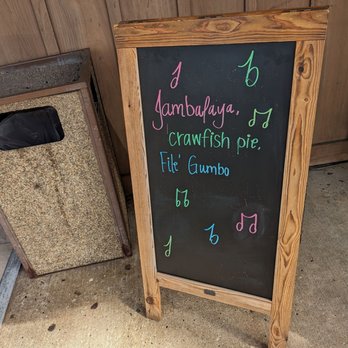 Jambalaya,
crawfish pie,
File' Gumbo